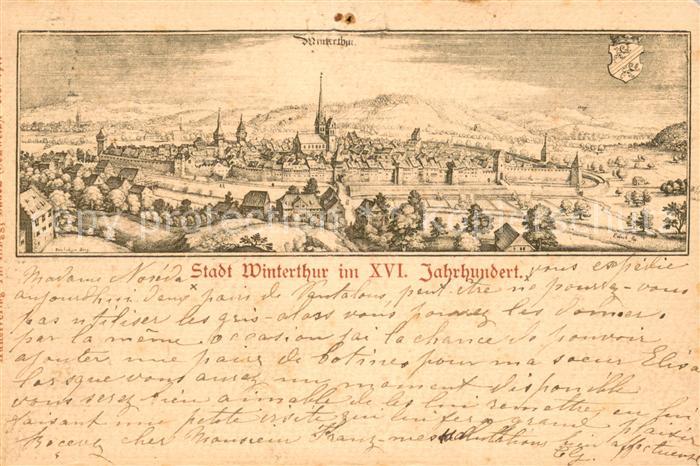 Winterthur.
Stadt Winterthur im XVI. Jahrhundert.
Madame vous expédie
aujourd'hui deux pairs de Pantalons, peut être ne pourrez-vous
pas utiliser les gris-alors vous pouvez les donner.
par la même occasion j'ai la chance de pouvoir
ajouter une paire de botines pour ma soeur Elisa
lorsque vous aurez un moment disponible
vous serez bien aimable de les lui remettre, en lui
faisant une petite visite qui lui fera grand plaisir
Recevez cher Monsieur Franz mes salutations